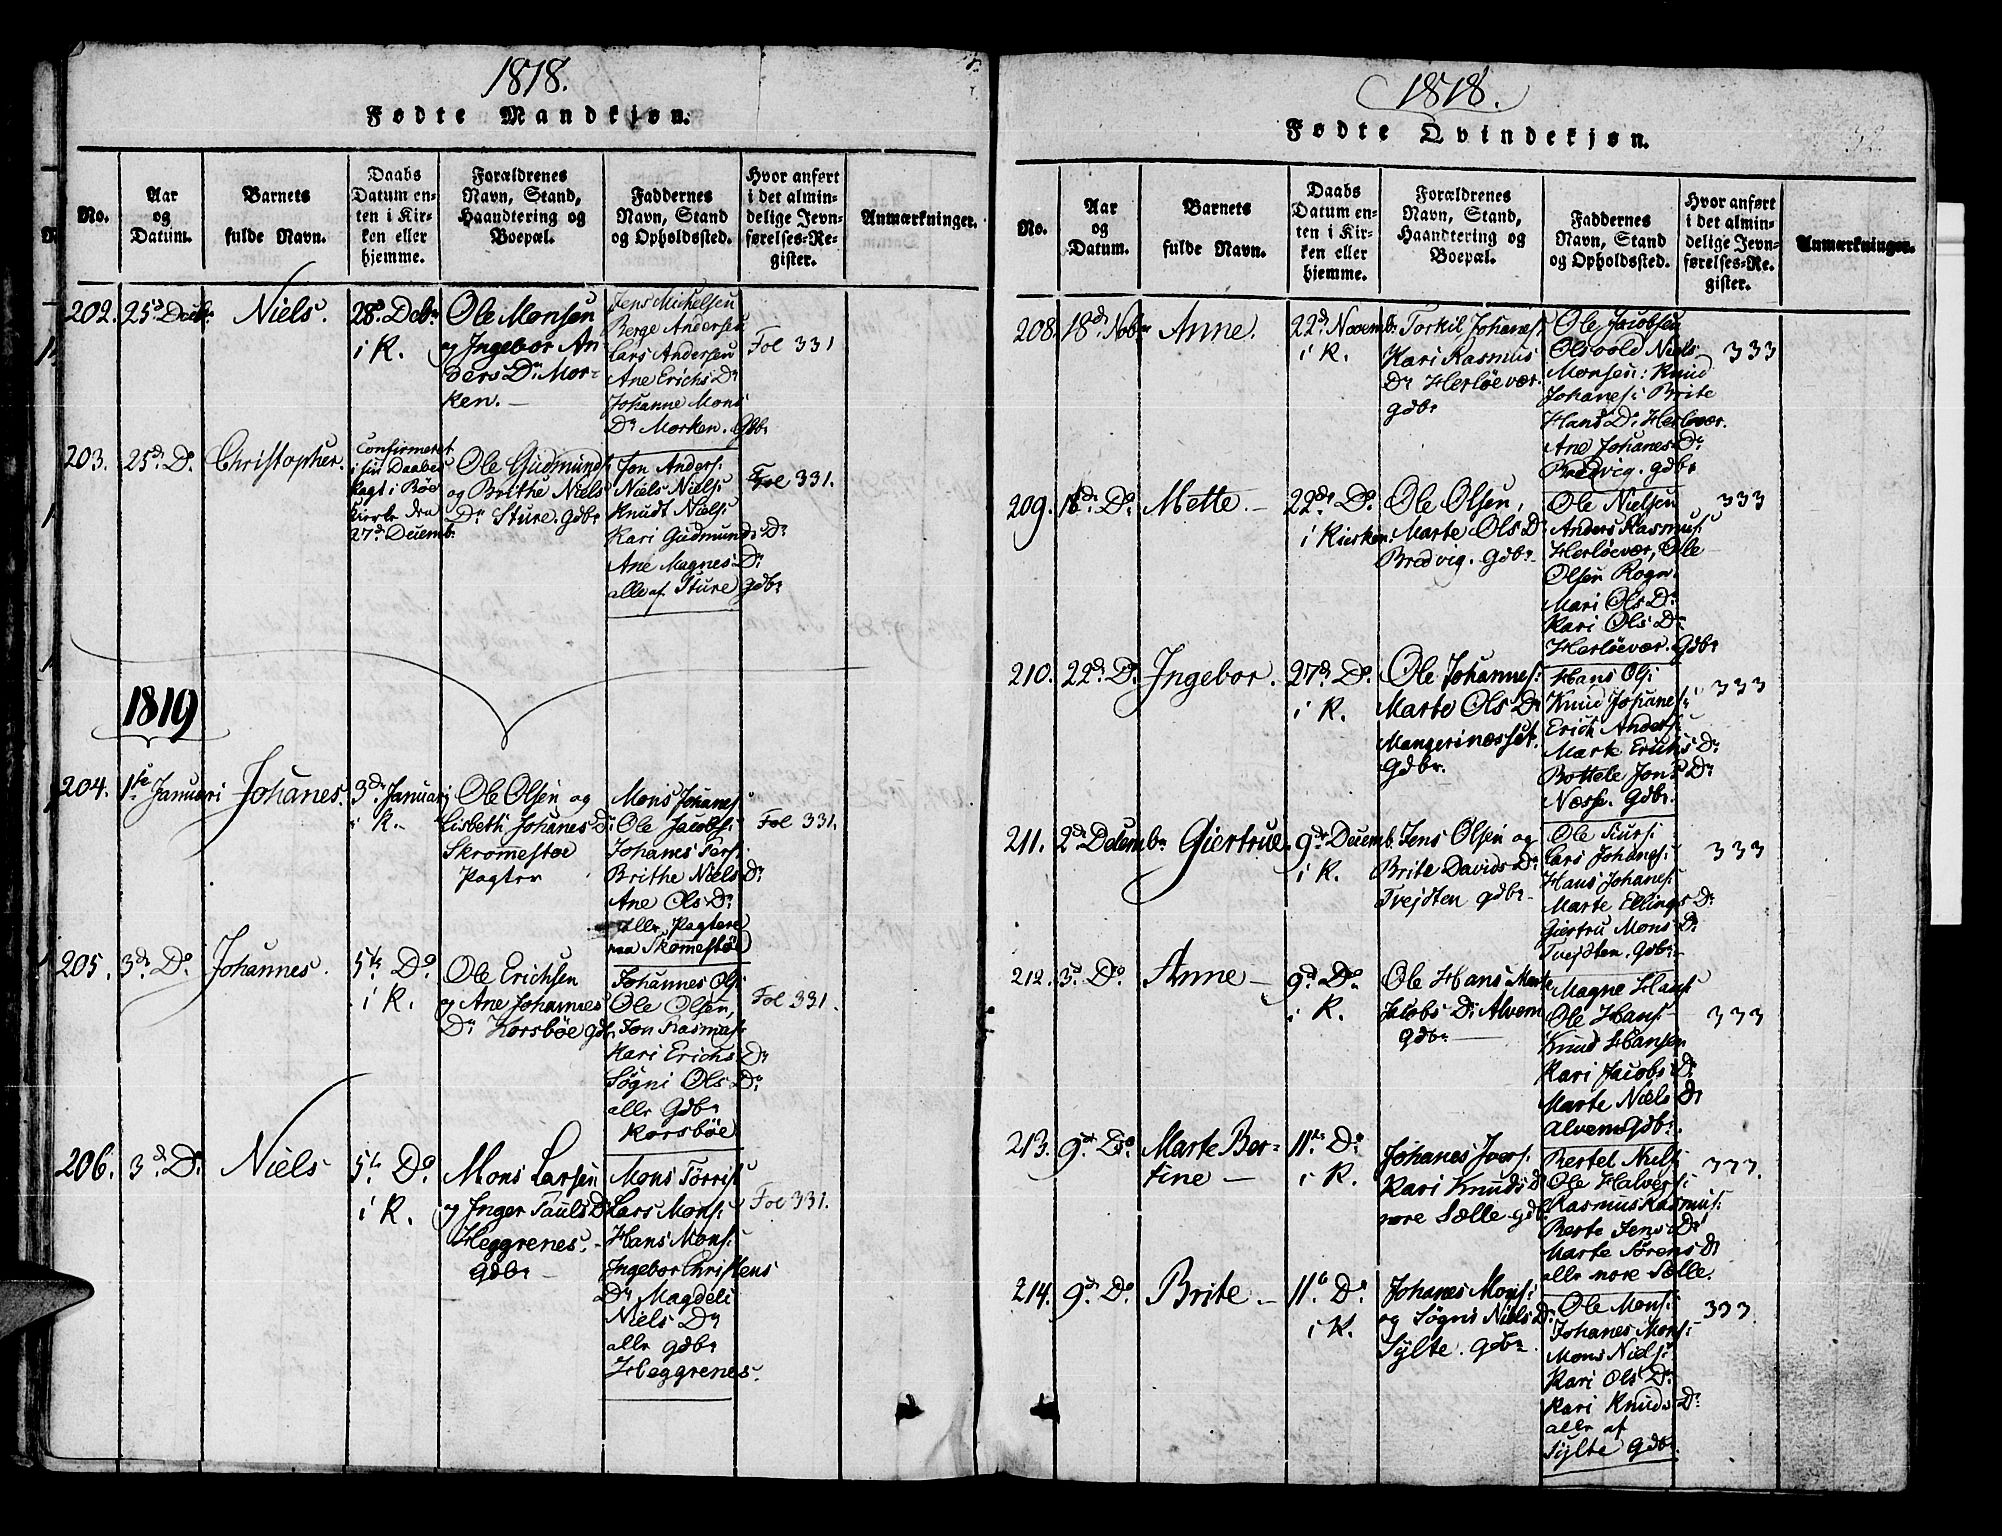 1818.
Fødte Mandkjøn.
No.
Aar
og
Datum.
Barnets
fulde Navn.
Daabs
Datum en-
ten i Kir-
ken eller
hjemme.
Forældrenes
Navn, Stand,
Haandtering og
Boepæl.
Faddernes
Navn, Stand
og Opholdssted.
Hvor anført
i det almin-
delige Jevn-
førelses-Re-
gister.
Anmærkninger.
202. 25d Decbr
Niels.
28d Debr
i K.
Ole Monsen
og Ingebor An-
ders Dr Mor-
ken. —
Jens Michelsen
Berge Andersen
Lars Andersen
Ane Erichs Dr
Johanne Mons
Dr Morken. Gdbr
Fol 331
203. 25d Do
Christopher.
Confirmeret
i sin Daabes
Pagt i Bøe
Kirke den
27d Decemb.
Ole Gudmunds:
og Brithe Niels
Dr Sture. gdbr
Jon Anders:
Niels Niels:
Knudt Niels:
Kari Gudmunds Dr
Ane Magnes Dr
alle af Sture gdbr
Fol 331.
1819
204. 1ste Januari
Johanes.
3d Januari
i K.
Ole Olsen og
Lisbeth Johanes Dr
Skromestøe
Pagter
Mons Johanes:
Ole Jacobs:
Johanes Pers:
Brithe Niels Dr
Ane Ols Dr
alle Pagtere
paa Skomestøe
Fol 331.
205. 3d Do
Johannes.
5te Do
i K.
Ole Erichsen
og Ane Johannes
Dr Korsbøe gdbr
Johannes Ols:
Ole Olsen,
Jon Rasmus:
Kari Erichs Dr
Søgni Ols Dr
alle Gdbr
Korsbøe
Fol 331.
206. 3d Do
Niels
5te Do
i K.
Mons Larsen
og Inger Pauls Dr
Heggrenes. —
Gdbr
Mons Torris:
Lars Mons:
Hans Mons:
Ingebor Christens
Dr Magdeli
Niels Dr
alle gdbr
Heggrenes.
Fol 331.
1818.
Fødte Qvindekjøn.
No.
Aar
og
Datum.
Barnets
fulde Navn.
Daabs
Datum en-
ten i Kir-
ken eller
hjemme.
Forældrenes
Navn, Stand,
Haandtering og
Boepæl.
Faddernes
Navn, Stand
og Opholdssted.
Hvor anført
i det almin-
delige Jevn-
førelses-Re-
gister.
Anmærkninger.
208. 18d Nobr
Anne.
22d Novemb.
i K.
Torkil Johanes:
Kari Rasmus
Dr Herløevær.
gdbr
Ole Jacobsen
Olsvold Niels
Monsen: Knud
Johanes: Brite
Hans Dr Herløevær.
Ane Johanes Dr
Bredvig. gdbr
333
209. 18d Do
Mette. —
22d Do
i Kirken:
Ole Olsen,
Marte Ols Dr
Bredvig. Gdbr
Ole Nielsen
Anders Rasmus:
Herløevær, Ole
Olsen Rogn.
Mari Ols Dr
Kari Ols Dr
Herløevær. Gdbr
333
210. 22d Do
Ingebor.
27d Do
i K.
Ole Johannes:
Marte Ols Dr
Mangerinæsset.
Gdbr.
Hans Ols:
Knud Johanes:
Erich Anders:
Marte Erichs Dr
Bottele Jons Dr
Næsse. Gdbr.
333
211. 2d Decembr
Giertrue.
9d Decemb.
i K.
Jens Olsen og
Brite Davids Dr
Tvejten gdbr
Ole Siurs:
Lars Johanes:
Hans Johanes:
Marte Ellings Dr
Giertru Mons Dr
Tvejten. Gdbr
333
212. 3d Do
Anne —
9d Do
i K.
Ole Hans: Marte
Jacobs Dr Alvem
Gdbr —
Magne Hans:
Ole Hans:
Knud Hansen
Kari Jacobs Dr
Marte Niels Dr
Alvem Gdbr.
333
213. 9d Do
Marte Ber-
tine —
11te Do
i K.
Johanes Ivers:
Kari Knuds Dr
nore Sælle gdbr
Bertel Niels:
Ole Halvers:
Rasmus Rasmus:
Berte Jens Dr
Marte Sørens Dr
alle nore Sælle.
333.
214. 9d Do
Brite —
11te Do
i K.
Johanes Mons:
og Søgni Niels Dr
Sylte. gdbr
Ole Mons:
Johanes Mons:
Mons Niels:
Kari Ols Dr
Kari Knuds Dr
alle af
Sylte Gdbr.
333.